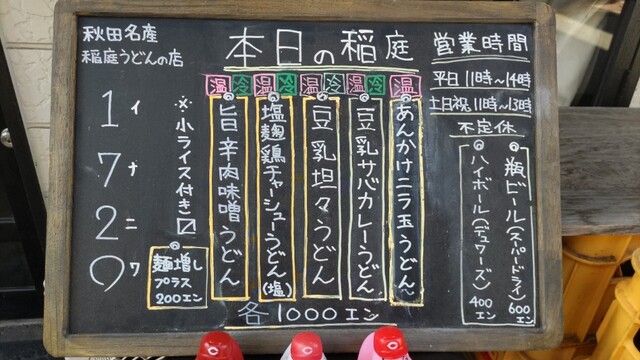 秋田名産
稲庭うどんの店
本日の稲庭
営業時間
平日 11時〜14時
土日祝 11時〜13時
不定休
瓶ビール(スーパードライ)600エン
ハイボール(デュワーズ)400エン
温
あんかけニラ玉うどん
温 冷
豆乳サバカレーうどん
温 冷
豆乳坦々うどん
温 冷
塩麹鶏チャーシューうどん(塩)
温 冷
旨辛肉味噌うどん
※小ライス付き
麺増し
プラス
200エン
1イ
7ナ
2ニ
0ワ
各1000エン